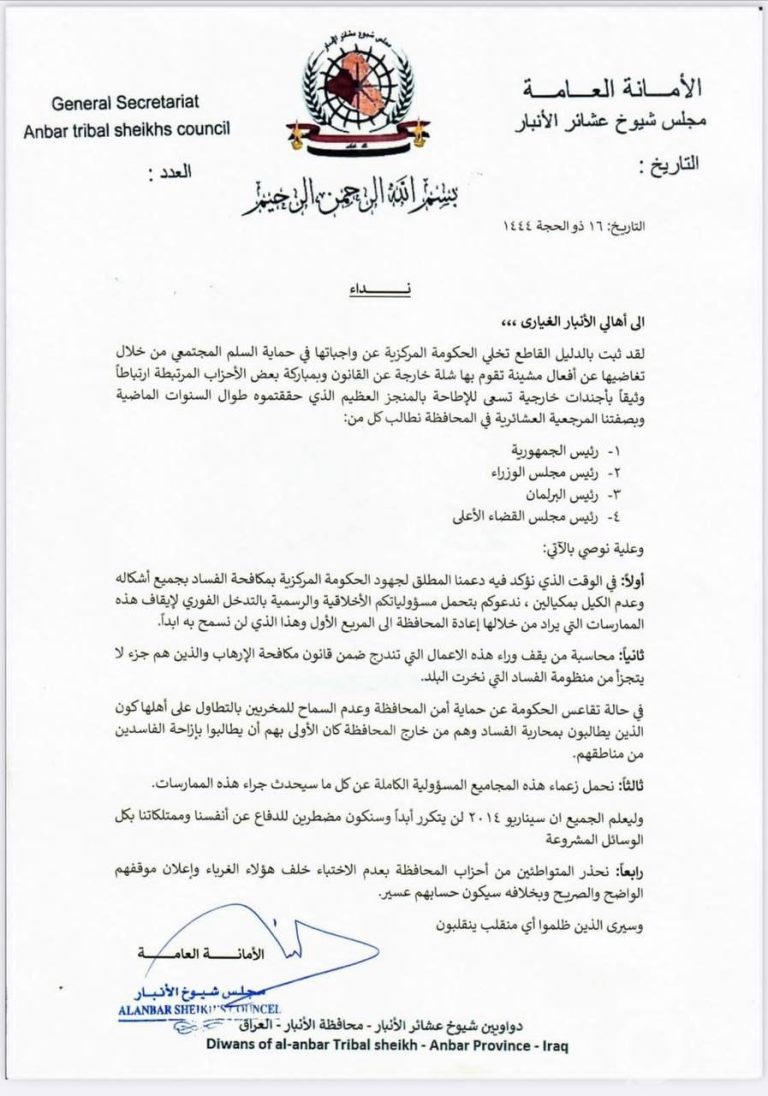 مجلس شيوخ عشائر الأنبار
الأمـانـة العـامـة
مجلس شيوخ عشائر الأنبار
التاريخ :
General Secretariat
Anbar tribal sheikhs council
العدد :
بسم الله الرحمن الرحيم
التاريخ: ١٦ ذو الحجة ١٤٤٤
نـــداء
الى أهالي الأنبار الغيارى ،،،
لقد ثبت بالدليل القاطع تخلي الحكومة المركزية عن واجباتها في حماية السلم المجتمعي من خلال
تغاضيها عن أفعال مشينة تقوم بها شلة خارجة عن القانون وبمباركة بعض الأحزاب المرتبطة ارتباطاً
وثيقاً بأجندات خارجية تسعى للإطاحة بالمنجز العظيم الذي حققتموه طوال السنوات الماضية
وبصفتنا المرجعية العشائرية في المحافظة نطالب كل من:
١- رئيس الجمهورية
٢- رئيس مجلس الوزراء
٣- رئيس البرلمان
٤- رئيس مجلس القضاء الأعلى
وعلية نوصي بالآتي:
أولاً: في الوقت الذي نؤكد فيه دعمنا المطلق لجهود الحكومة المركزية بمكافحة الفساد بجميع أشكاله
وعدم الكيل بمكيالين ، ندعوكم بتحمل مسؤولياتكم الأخلاقية والرسمية بالتدخل الفوري لإيقاف هذه
الممارسات التي يراد من خلالها إعادة المحافظة الى المربع الأول وهذا الذي لن نسمح به ابداً.
ثانياً: محاسبة من يقف وراء هذه الاعمال التي تندرج ضمن قانون مكافحة الإرهاب والذين هم جزء لا
يتجزأ من منظومة الفساد التي نخرت البلد.
في حالة تقاعس الحكومة عن حماية أمن المحافظة وعدم السماح للمخربين بالتطاول على أهلها كون
الذين يطالبون بمحاربة الفساد وهم من خارج المحافظة كان الأولى بهم أن يطالبوا بإزاحة الفاسدين
من مناطقهم.
ثالثاً: نحمل زعماء هذه المجاميع المسؤولية الكاملة عن كل ما سيحدث جراء هذه الممارسات.
وليعلم الجميع ان سيناريو ٢٠١٤ لن يتكرر أبداً وسنكون مضطرين للدفاع عن أنفسنا وممتلكاتنا بكل
الوسائل المشروعة
رابعاً: نحذر المتواطئين من أحزاب المحافظة بعدم الاختباء خلف هؤلاء الغرباء وإعلان موقفهم
الواضح والصريح وبخلافه سيكون حسابهم عسير.
وسيرى الذين ظلموا أي منقلب ينقلبون
الأمانـة العامـة
مجلس شيوخ الأنبار
ALANBAR SHEIKH'S COUNCEL
دواوين شيوخ عشائر الأنبار - محافظة الأنبار - العراق
Diwans of al-anbar Tribal sheikh - Anbar Province - Iraq